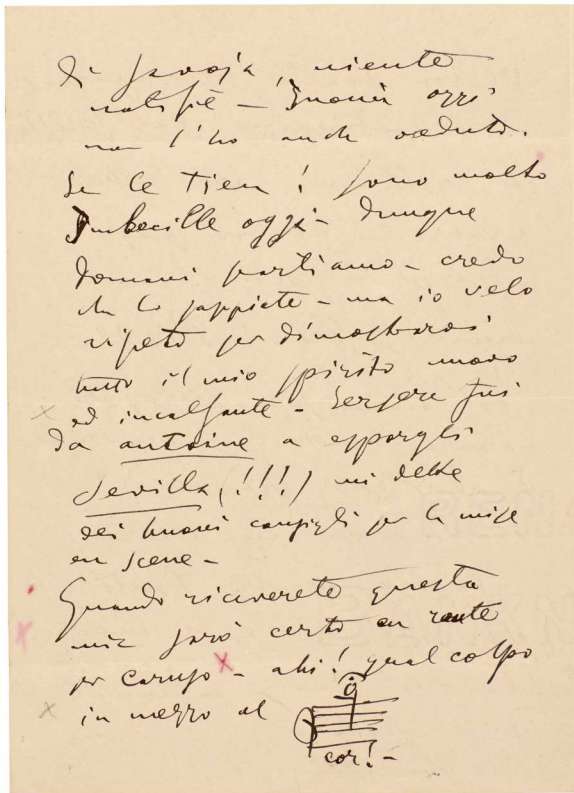 di Savoja, niente
nati fè – Quanin oggi
non l'ho anch veduto.
Se le tien! Sono molto
Imbecille oggi – dunque
domani partiamo – credo
che lo sappiate – ma io velo
ripeto per dimostrarvi
tutto il mio spirito nuovo
ed incalzante – Sersera fui
da Antoine a esporgli
Sevilla (!!!) mi dette
dei buoni consigli per la mise
en scene –
Quando riceverete questa
mia sarò certo en route
per Caruso – ahi! qual colpo
in mezzo al
cor! –